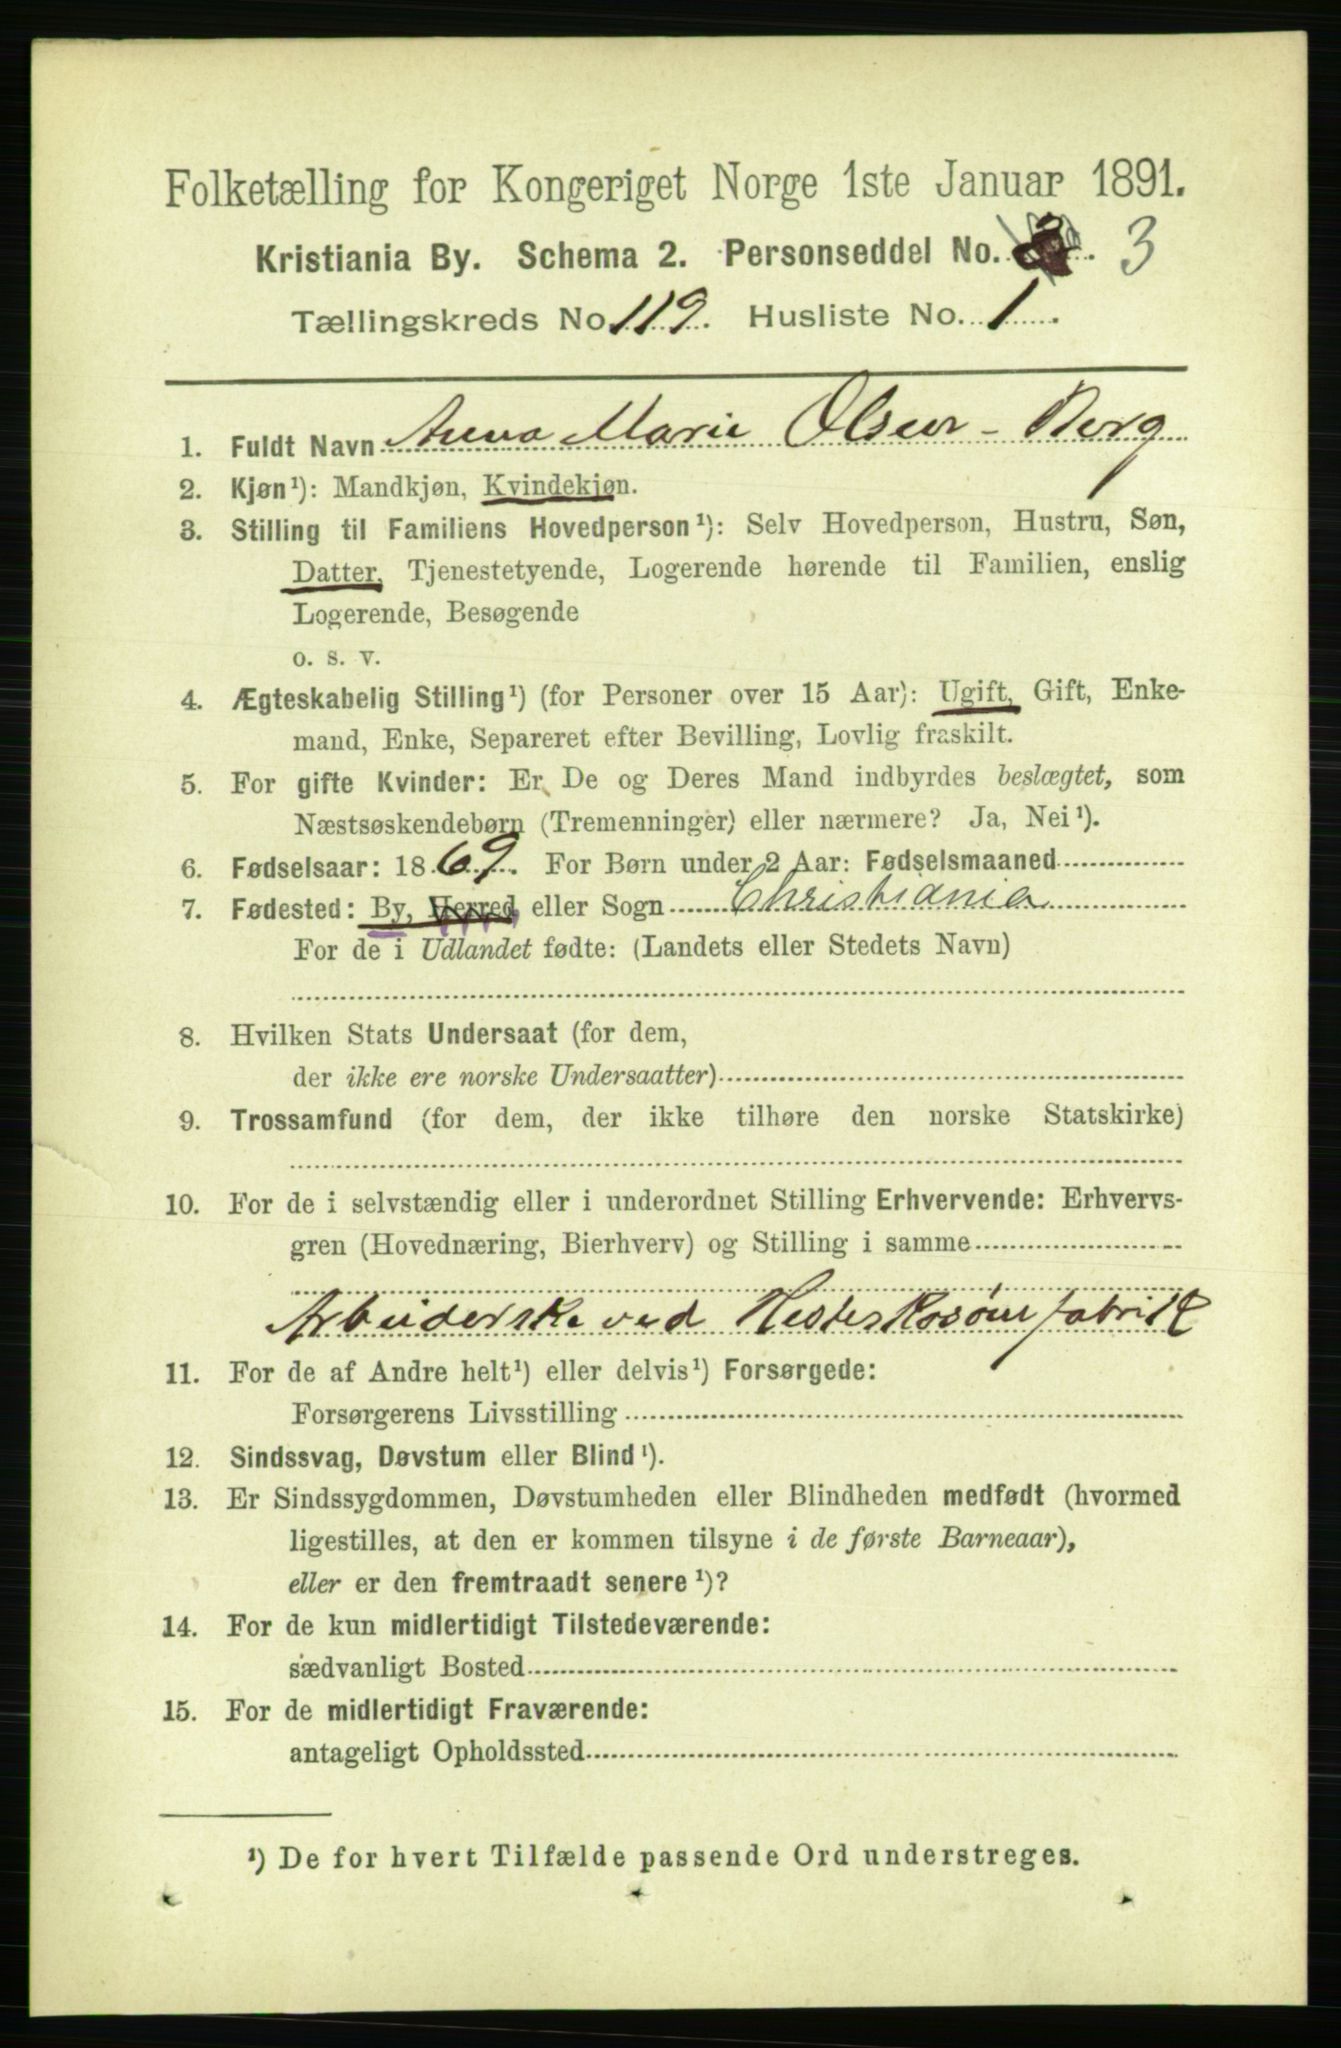 Folketælling for Kongeriget Norge 1ste Januar 1891.
Kristiania By. Schema 2. Personseddel No. 3
Tællingskreds No. 119. Husliste No. 1
1. Fuldt Navn Anna Marie Olsen - Berg
2. Kjøn¹): Mandkjøn, Kvindekjøn.
3. Stilling til Familiens Hovedperson¹): Selv Hovedperson, Hustru, Søn,
Datter, Tjenestetyende, Logerende hørende til Familien, enslig
Logerende, Besøgende
o. s. v.
4. Ægteskabelig Stilling¹) (for Personer over 15 Aar): Ugift, Gift, Enke-
mand, Enke, Separeret efter Bevilling, Lovlig fraskilt.
5. For gifte Kvinder: Er De og Deres Mand indbyrdes beslægtet, som
Næstsøskendebørn (Tremenninger) eller nærmere? Ja, Nei¹).
6. Fødselsaar: 1869. For Børn under 2 Aar: Fødselsmaaned
7. Fødested: By, Herred eller Sogn Christiania
For de i Udlandet fødte: (Landets eller Stedets Navn)
8. Hvilken Stats Undersaat (for dem,
der ikke ere norske Undersaatter)
9. Trossamfund (for dem, der ikke tilhøre den norske Statskirke)
10. For de i selvstændig eller i underordnet Stilling Erhvervende: Erhvervs-
gren (Hovednæring, Bierhverv) og Stilling i samme
Arbeiderske ved Hesteskosømfabrik
11. For de af Andre helt¹) eller delvis¹) Forsørgede:
Forsørgerens Livsstilling
12. Sindssvag, Døvstum eller Blind¹).
13. Er Sindssygdommen, Døvstumheden eller Blindheden medfødt (hvormed
ligestilles, at den er kommen tilsyne i de første Barneaar),
eller er den fremtraadt senere¹)?
14. For de kun midlertidigt Tilstedeværende:
sædvanligt Bosted
15. For de midlertidigt Fraværende:
antageligt Opholdssted
¹) De for hvert Tilfælde passende Ord understreges.